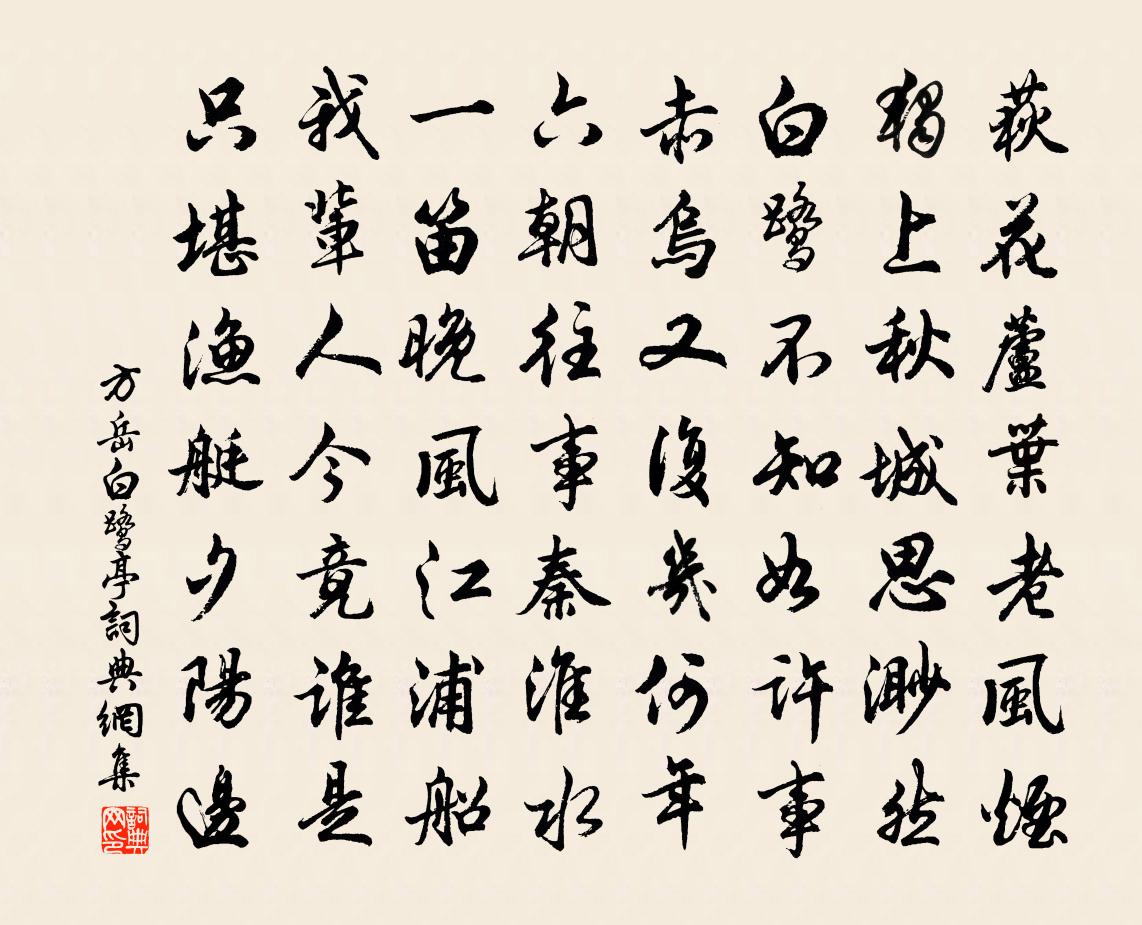 荻花蘆葉老風煙
獨上秋城思渺然
白鷺不知如許事
赤烏又復幾何年
六朝往事秦淮水
一笛晚風江浦船
我輩人今竟誰是
只堪漁艇夕陽邊
方岳白鷺亭詞典網集
詞典網印